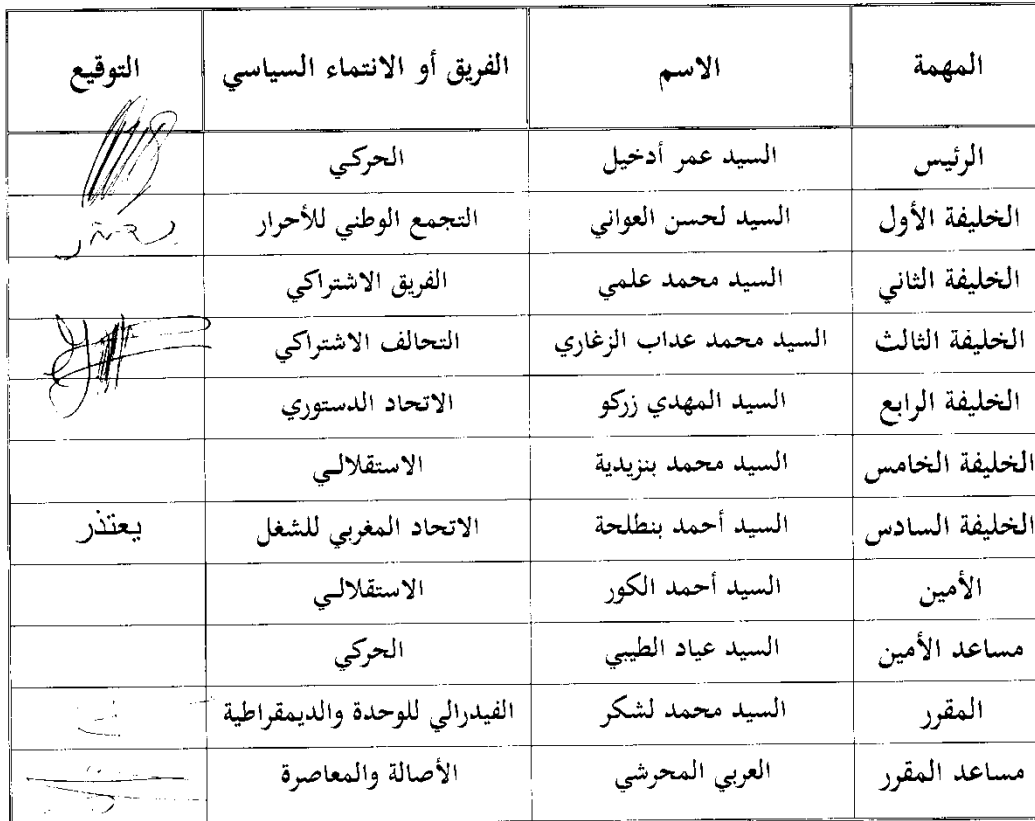 المهمة الاسم الفريق أو الانتماء السياسي التوقيع
الرئيس السيد عمر أدخيل الحركي
الخليفة الأول السيد لحسن العواني التجمع الوطني للأحرار
الخليفة الثاني السيد محمد علمي الفريق الاشتراكي
الخليفة الثالث السيد محمد عداب الزغاري التحالف الاشتراكي
الخليفة الرابع السيد المهدي زركو الاتحاد الدستوري
الخليفة الخامس السيد محمد بنزيدية الاستقلالي
الخليفة السادس السيد أحمد بنطلحة الاتحاد المغربي للشغل يعتذر
الأمين السيد أحمد الكور الاستقلالي
مساعد الأمين السيد عياد الطيبي الحركي
المقرر السيد محمد لشكر الفيدرالي للوحدة والديمقراطية
مساعد المقرر العربي المحرشي الأصالة والمعاصرة